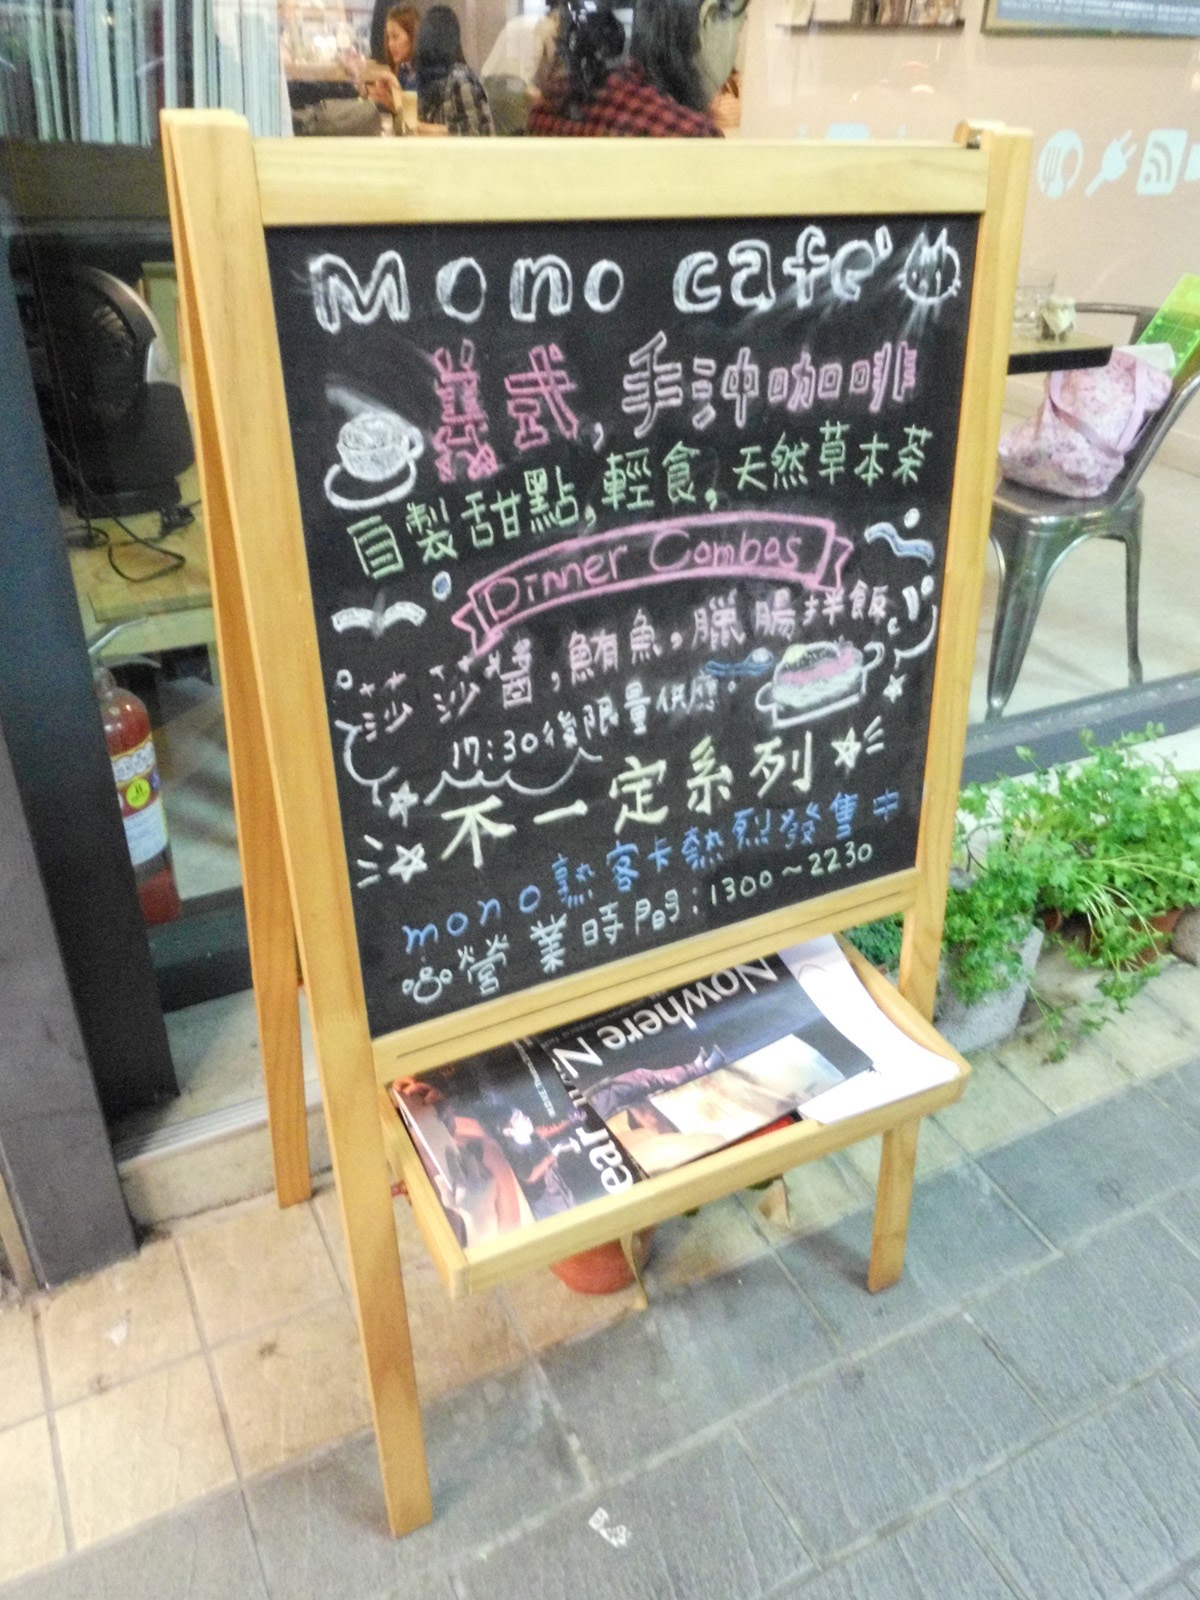 mono café
義式, 手沖咖啡
自製甜點, 輕食, 天然草本茶
Dinner Combos
莎莎醬, 鮪魚, 臘腸拌飯
17:30後限量供應
不一定系列
mono熟客卡熱烈發售中
營業時間: 1300~2230
Nowhere N
ear